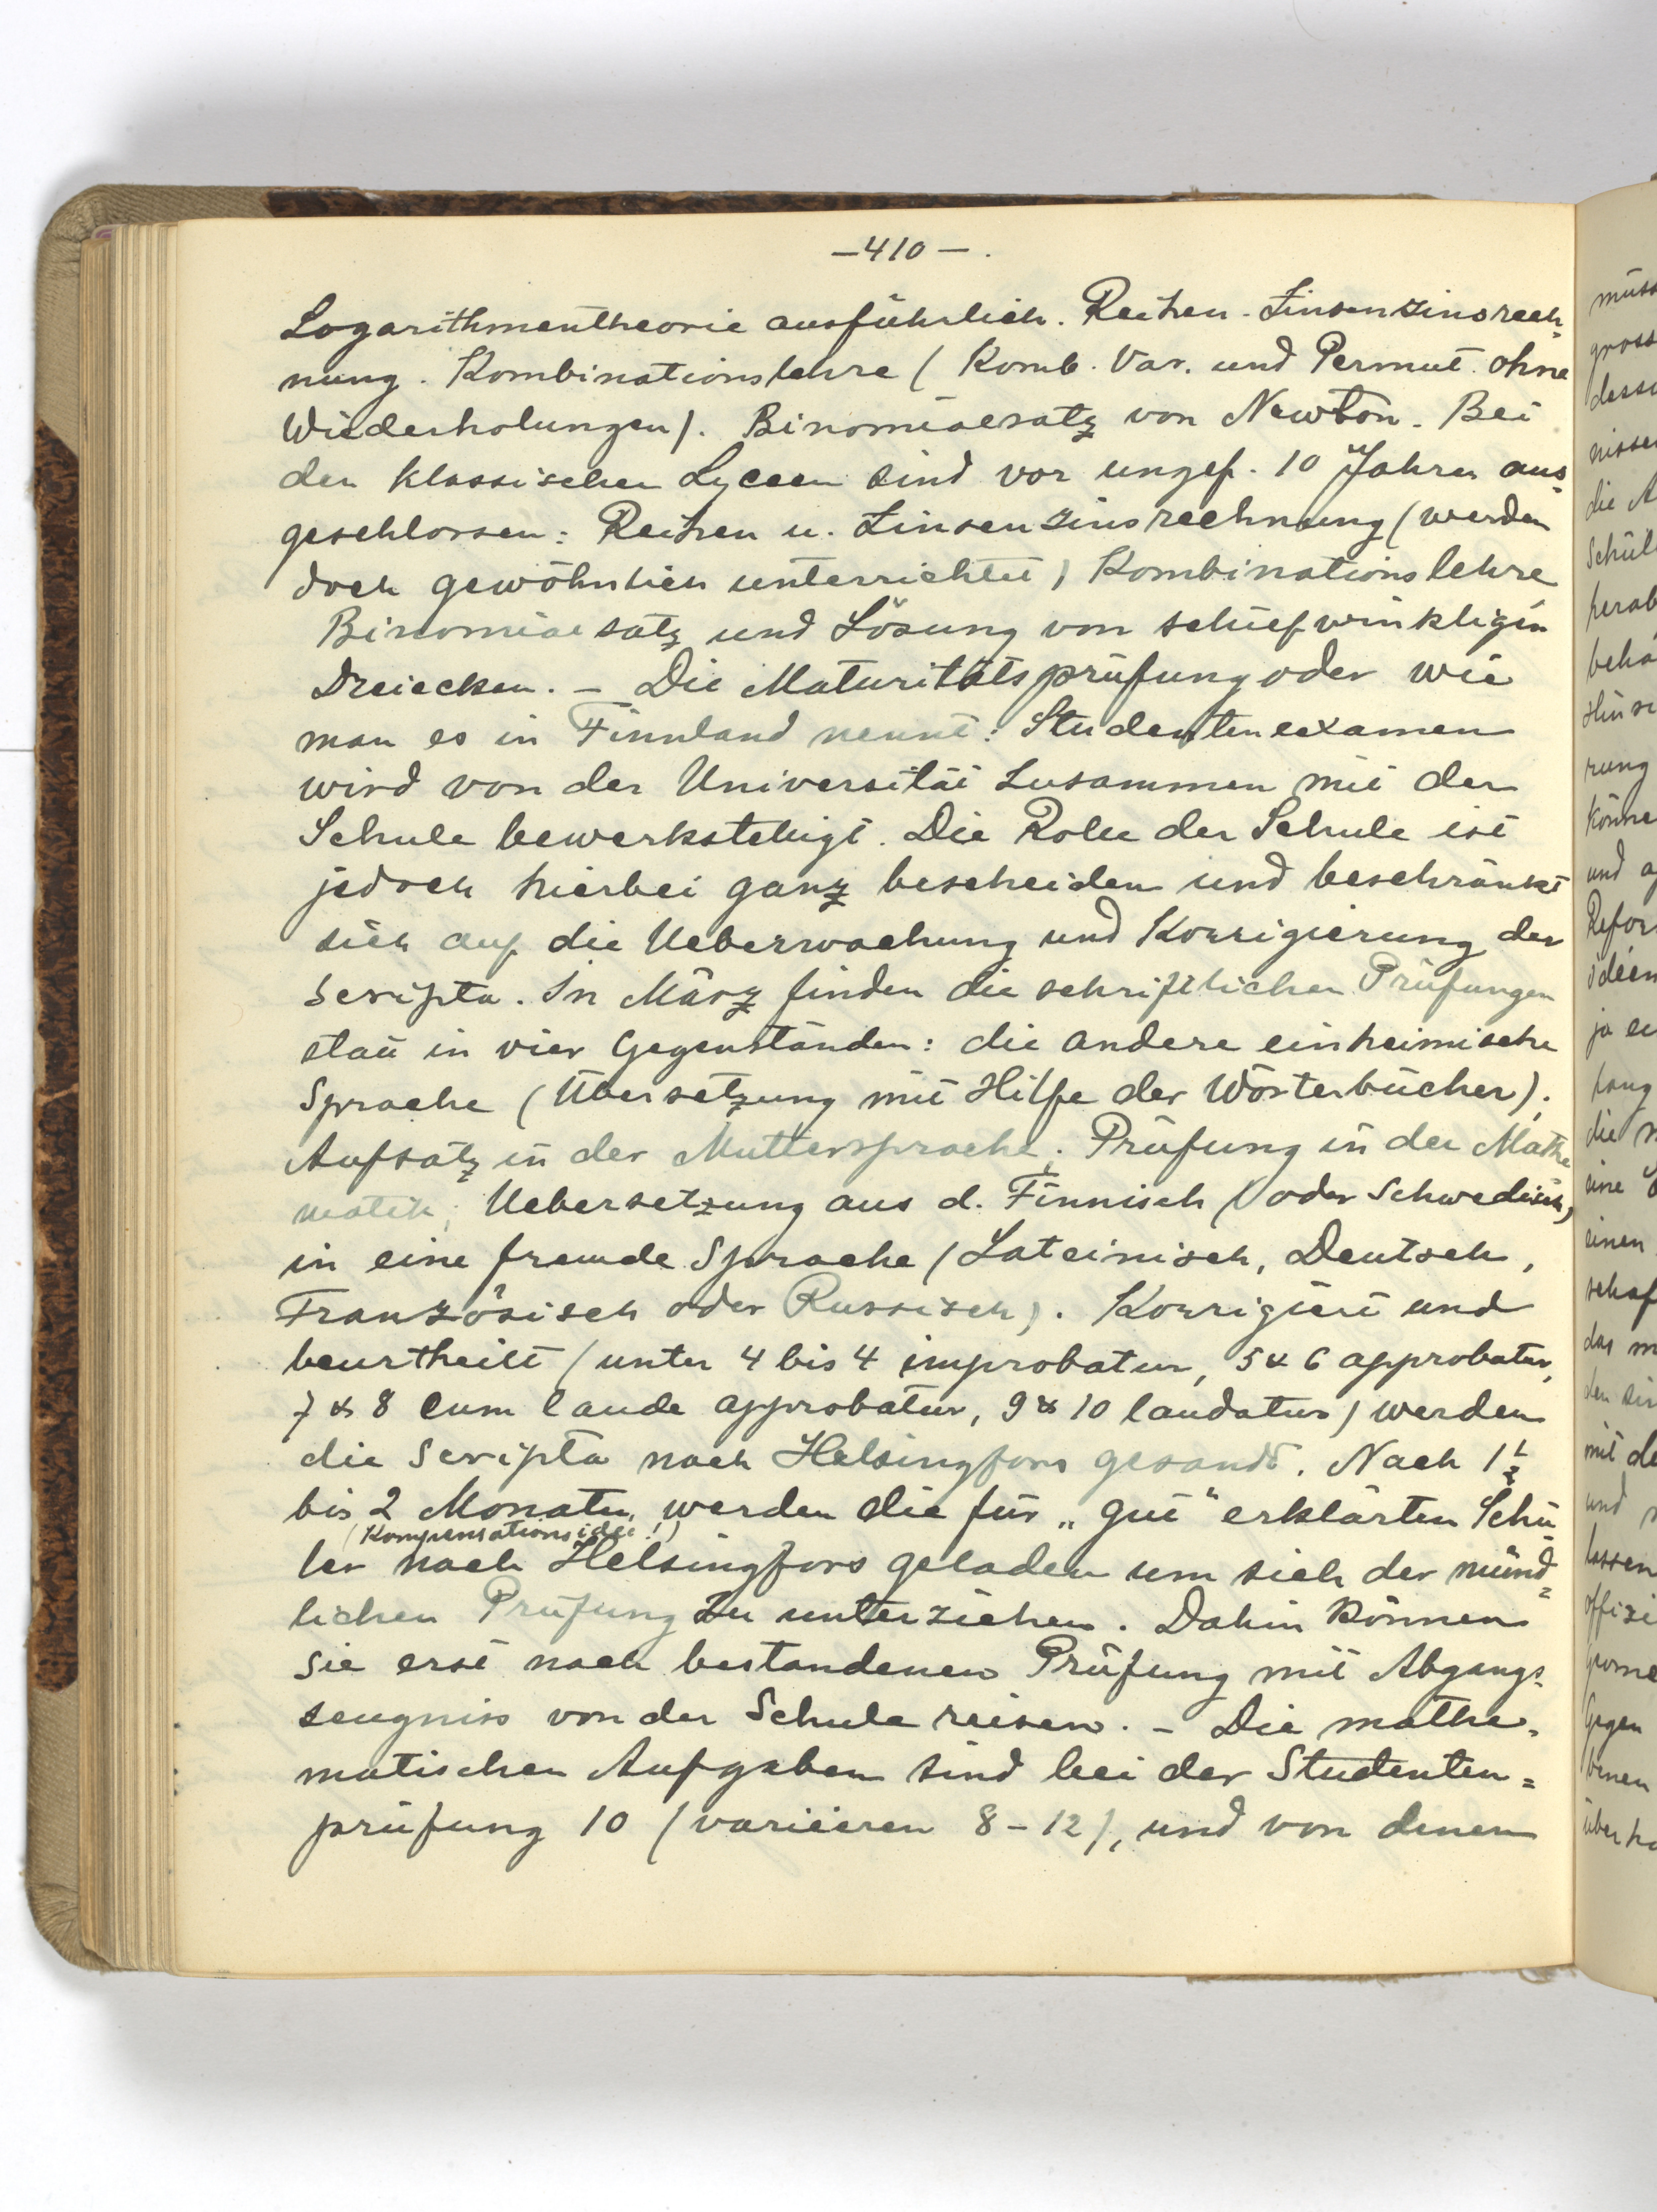 —410—.
Logarithmentheorie ausführlich. Reihen. Zinsenzinsrech-
nung. Kombinationslehre (Komb. Var. und Permut. ohne
Wiederholungen). Binomialsatz von Newton. Bei
den klassischen Lyceen sind vor ungef. 10 Jahren aus-
geschlossen: Reihen u. Zinsenzinsrechnung (werden
doch gewöhnlich unterrichtet) Kombinationslehre
Binomialsatz und Lösung von schiefwinkligen
Dreiecken. – Die Maturitätsprüfung oder wie
man es in Finnland nennt: Studentenexamen
wird von der Universität zusammen mit der
Schule bewerkstelligt. Die Rolle der Schule ist
jedoch hierbei ganz bescheiden und beschränkt
sich auf die Ueberwachung und Korrigierung der
Scripta. In März finden die schriftlichen Prüfungen
statt in vier Gegenständen: die andere einheimische
Sprache (Übersetzung mit Hilfe der Wörterbücher);
Aufsatz in der Muttersprache; Prüfung in der Mathe
matik; Uebersetzung aus d. Finnisch (oder Schwedisch)
in eine fremde Sprache (Lateinisch, Deutsch,
Französisch oder Russisch). Korrigiert und
beurtheilt (unter 4 bis 4 improbatur, 5 & 6 approbatur,
7 & 8 cum laude approbatur, 9 & 10 laudatur) werden
die Scripta nach Helsingfors gesandt. Nach 1½
bis 2 Monaten werden die für „gut“ erklärten Schü
(Kompensationsidee!)
ler nach Helsingfors geladen um sich der münd-
lichen Prüfung zu unterziehen. Dahin können
sie erst nach bestandenen Prüfung mit Abgangs-
zeugniss von der Schule reisen. – Die mathe-
matischen Aufgaben sind bei der Studenten=
prüfung 10 (variieren 8–12), und von denen
müss
gross
nisse
die A
Schül
herab
behä
rung
könne
und
Refor
ideen
ja
die
eine
einen
schaf
das
mit de
und
lassen
offizi
Gegen